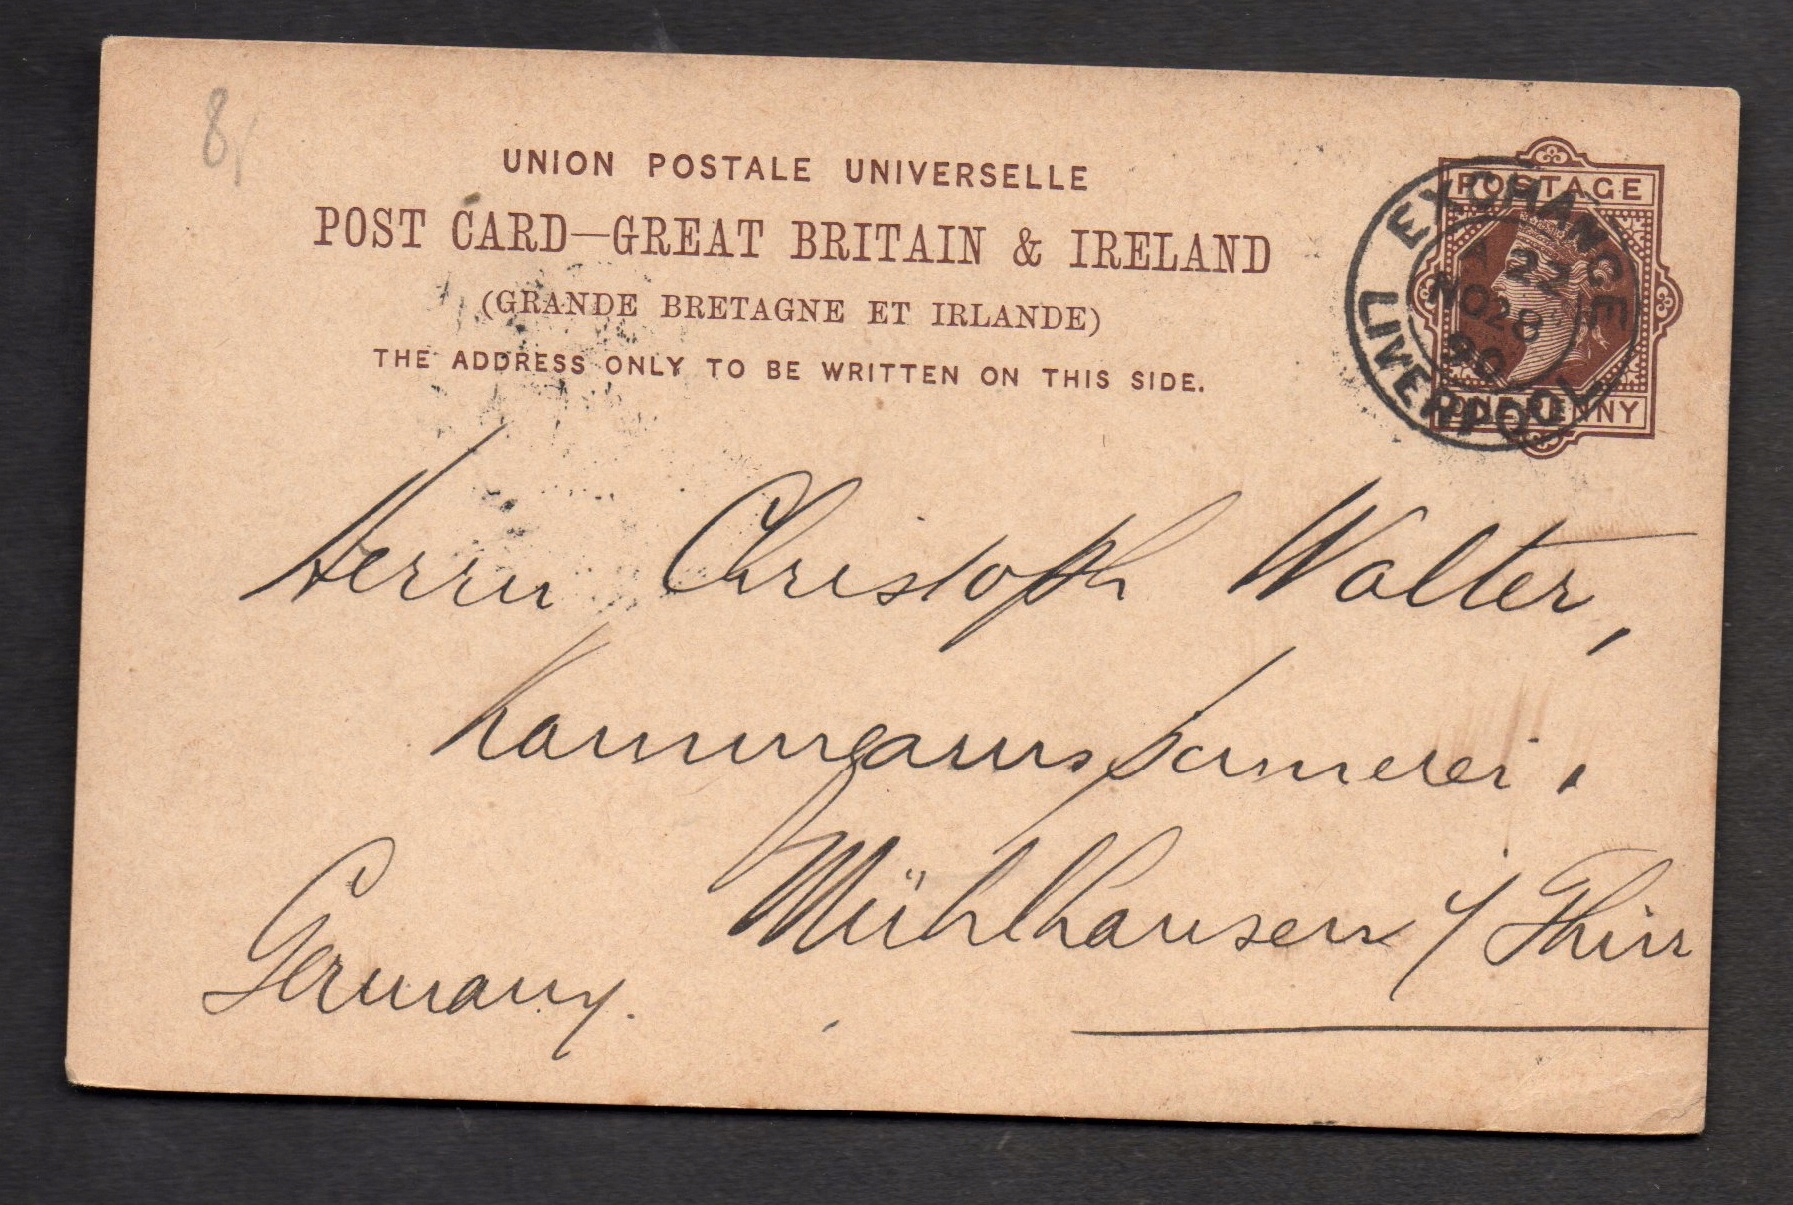 8/
UNION POSTALE UNIVERSELLE
POST CARD—GREAT BRITAIN & IRELAND
(GRANDE BRETAGNE ET IRLANDE)
THE ADDRESS ONLY TO BE WRITTEN ON THIS SIDE.
POSTAGE
ONE PENNY
EXCHANGE
A 22
NO 28
90
LIVERPOOL
Herrn Christoph Walter,
Kammgarnspinnerei,
Mühlhausen i/Thür
Germany.